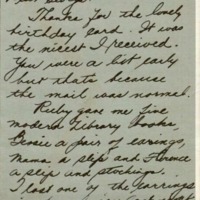 Thanks for the lovely
birthday card. It was
the nicest I received.
You were a bit early
but thats because
the mail was normal.
Ruby gave me five
modern Library books,
Bessie a pair of earings,
Mama a slip and Florence
a slip and stockings.
I lost one of the earrings